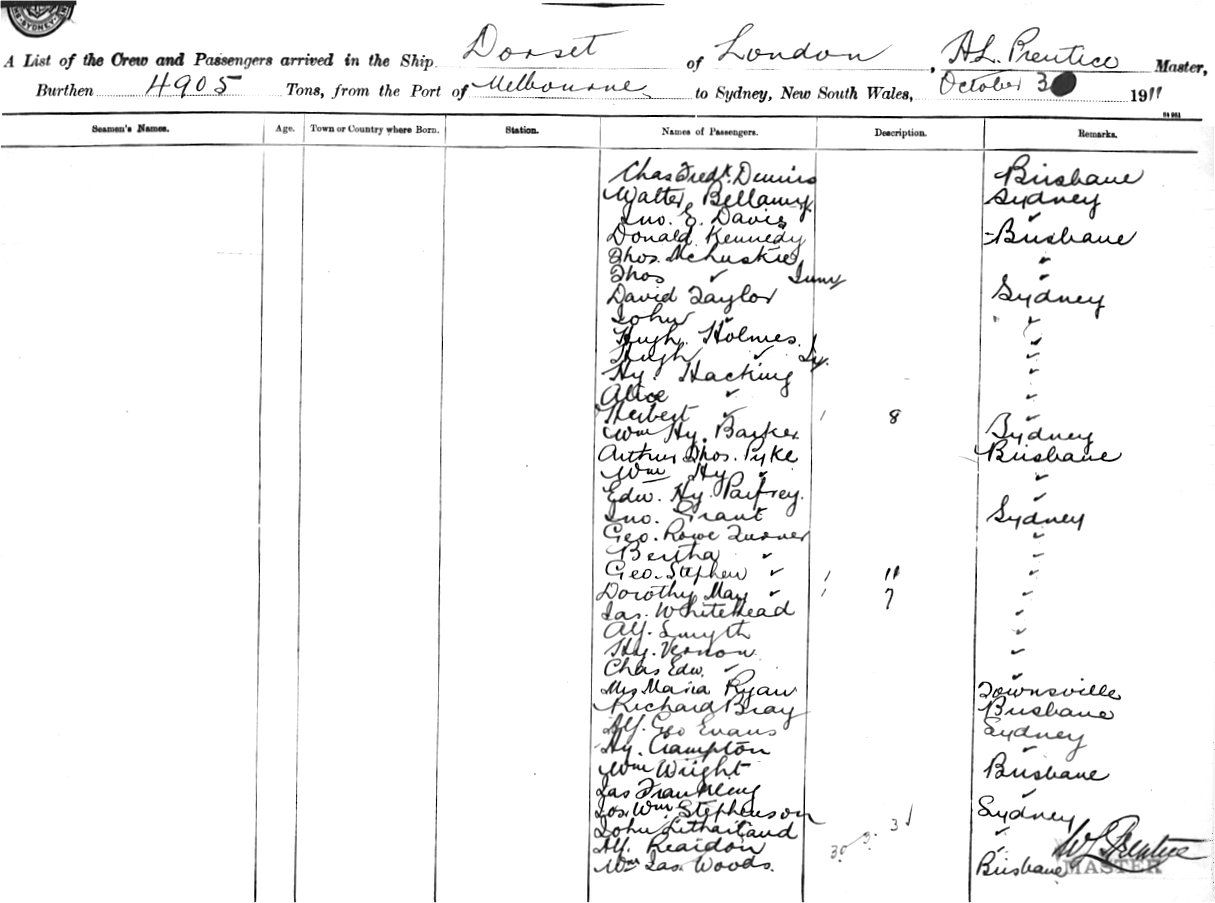 SYDNEY
A List of the Crew and Passengers arrived in the Ship Dorset of London, A L. Prentice Master,
Burthen 4905 Tons, from the Port of Melbourne to Sydney, New South Wales, October 30 1911
Seamen's Names. Age. Town or Country where Born. Station. Names of Passengers. Description. Remarks.
Chas Fredk. Dennis Brisbane
Walter Bellamy Sydney
Jno. E. Davis ✓
Donald Kennedy Brisbane
Thos. McLuskie ✓
Thos ✓ Junr ✓
David Taylor Sydney
John ✓ ✓
Hugh Holmes. ✓
Hugh ✓ Jr. ✓
Hy. Hacking ✓
Alice ✓ ✓
Herbert ✓ 1 8 ✓
Wm Hy. Barker Sydney
Arthur Thos. Pyke Brisbane
Wm Hy ✓ ✓
Edw. Hy. Parfrey. ✓
Jno. Grant Sydney
Geo. Rowe Turner ✓
Bertha ✓ ✓
Geo. Stephen ✓ 1 11 ✓
Dorothy May ✓ 1 7 ✓
Jas. Whitehead ✓
Alf. Smyth ✓
Hy. Vernon ✓
Chas Edw. ✓ ✓
Mrs Maria Ryan Townsville
Richard Bray Brisbane
Alf. Geo Evans Sydney
Hy. Crampton ✓
Wm Wright Brisbane
Jas ✓
Jos. Wm Stephenson Sydney
John ✓
Alf. Reardon 30 9. 3 ✓
Wm Jas. Woods. Brisbane
Prentice
MASTER